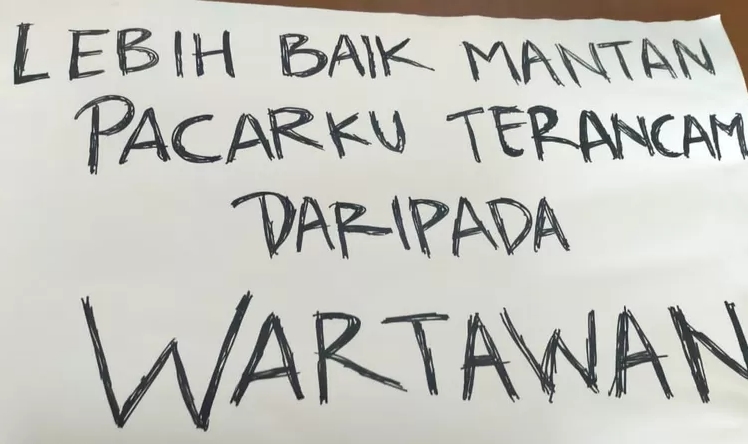 LEBIH BAIK MANTAN
PACARKU TERANCAM
DARIPADA
WARTAWAN